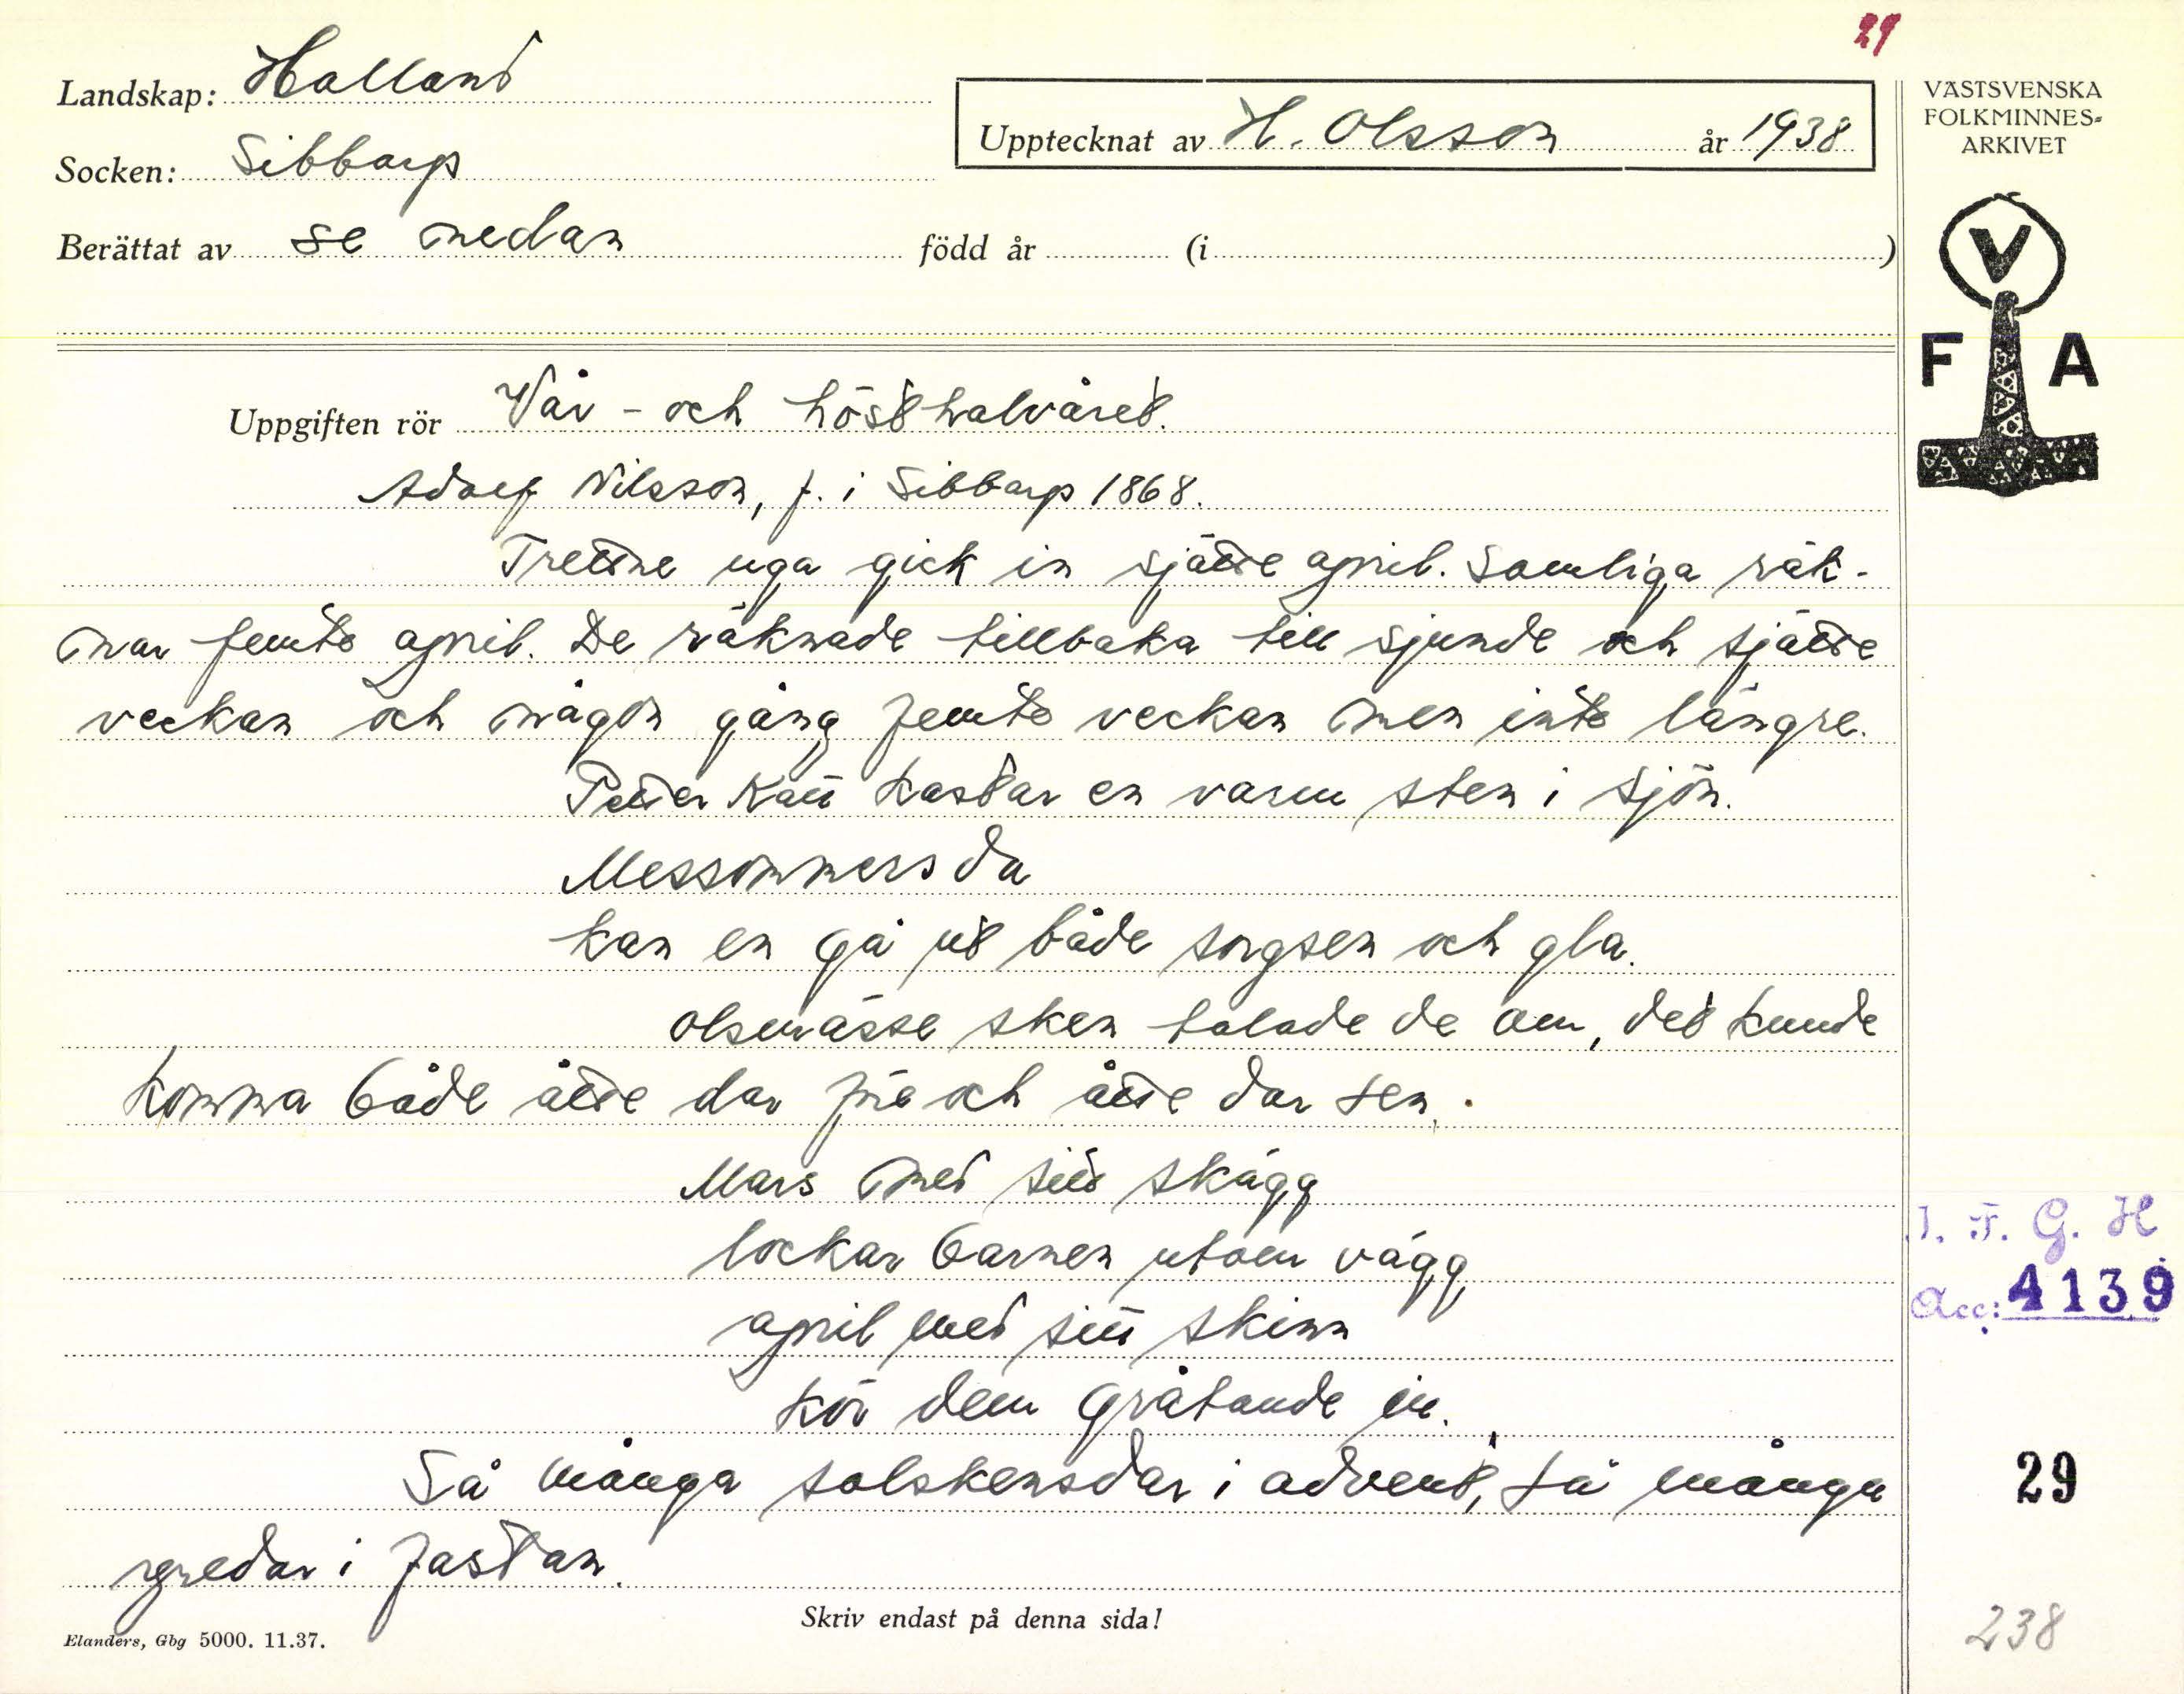 29
Landskap: Halland
Upptecknat av H. Olsson år 1938
Socken: Sibbarp
Berättat av se nedan född år (i )
VÄSTSVENSKA
FOLKMINNES-
ARKIVET
V
F A
Uppgiften rör Vår- och hösthalvåret.
Adolf Nilsson, f. i Sibbarp 1868.
Trettne uga gick in sjätte april. Somliga räk-
nar femte april. De räknade tillbaka till sjunde och sjätte
veckan och någon gång femte veckan men inte längre.
Petter Katt kastar en varm sten i sjön.
Messommersda
kan en gå ut både sorgsen och gla.
Olsmässe sken talade de om, det kunde
komma både åtte dar före och åtte dar sen.
Mars med sitt skägg
lockar barnen utom vägg
april med sitt skinn
kör dem gråtande in.
Så många solskensdar i advent, så många
regnedar i fastan.
Skriv endast på denna sida!
Elanders, Gbg 5000. 11.37.
I. F. G. H
Acc: 4139
29
238